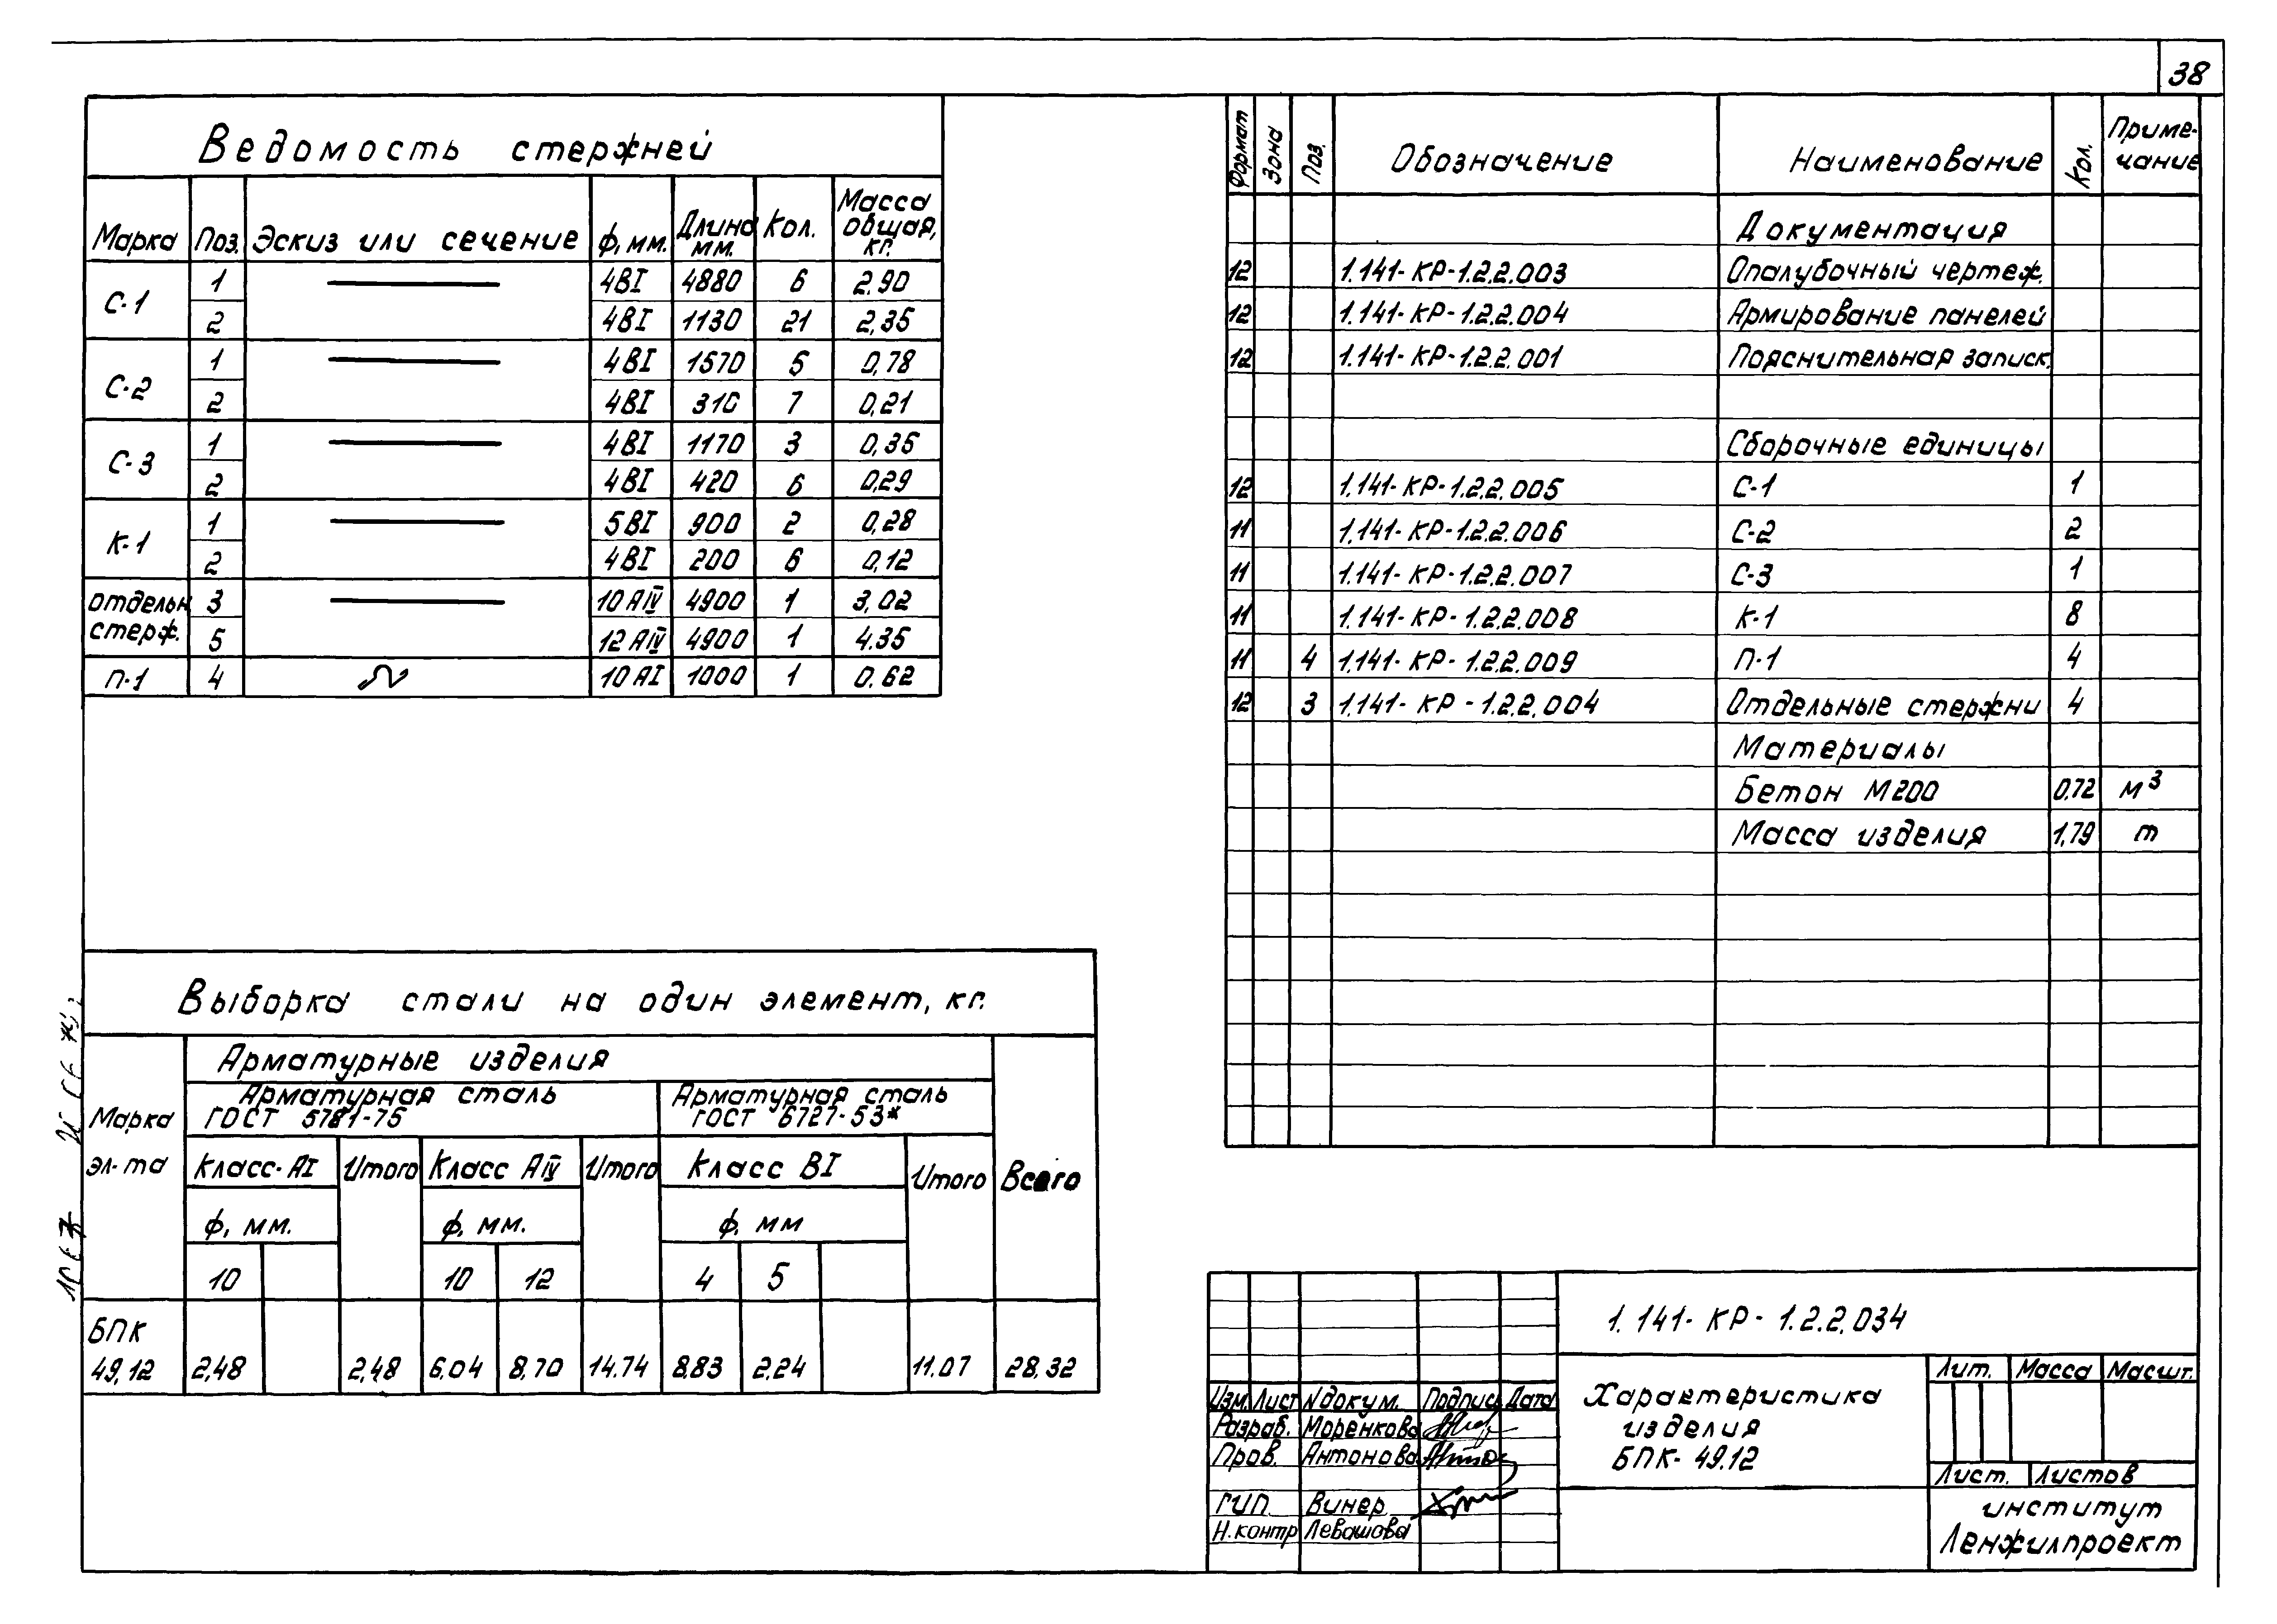 38
Ведомость стержней
Марка Поз. Эскиз или сечение ф, мм. Длина мм. Кол. Масса общая, кг.
С-1 1 4ВI 4880 6 2.90
2 4ВI 1130 21 2,35
С-2 1 4ВI 1570 5 0,78
2 4ВI 310 7 0,21
С-3 1 4ВI 1170 3 0,35
2 4ВI 420 6 0,29
К-1 1 5ВI 900 2 0,28
2 4ВI 200 6 0,12
отдельн стерж. 3 10 АIV 4900 1 3,02
5 12 АIV 4900 1 4.35
П-1 4 10 АI 1000 1 0.62
Выборка стали на один элемент, кг.
Марка эл-та
Арматурные изделия
Арматурная сталь ГОСТ 5781-75
Арматурная сталь ГОСТ 6727-53*
Класс-АI Итого Класс АIV Итого Класс ВI Итого Всего
ф, мм. ф, мм. ф, мм
10 10 12 4 5
БПК
49,12 2,48 2,48 6,04 8,70 14.74 8,83 2.24 11.07 28,32
Формат Зона Поз. Обозначение Наименование Кол. Приме-чание
Документация
12 1.141-КР-1.2.2.003 Опалубочный чертеж.
12 1.141-КР-1.2.2.004 Армирование панелей
12 1.141-КР-1.2.2.001 Пояснительная записк.
Сборочные единицы
12 1.141-КР-1.2.2.005 С-1 1
11 1.141-КР-1.2.2.006 С-2 2
11 1.141-КР-1.2.2.007 С-3 1
11 1.141-КР-1.2.2.008 К-1 8
11 4 1.141-КР-1.2.2.009 П-1 4
12 3 1.141-КР-1.2.2.004 Отдельные стержни 4
Материалы
Бетон М200 0,72 м³
Масса изделия 1,79 т
1.141-КР-1.2.2.034
Изм. Лист Nдокум. Подпись Дата
Разраб. Моренкова
Пров. Антонова
ГИП. Винер
Н.контр Левашова
Характеристика
изделия
БПК-49.12
Лит. Масса Масшт.
Лист. Листов
институт
Ленжилпроект